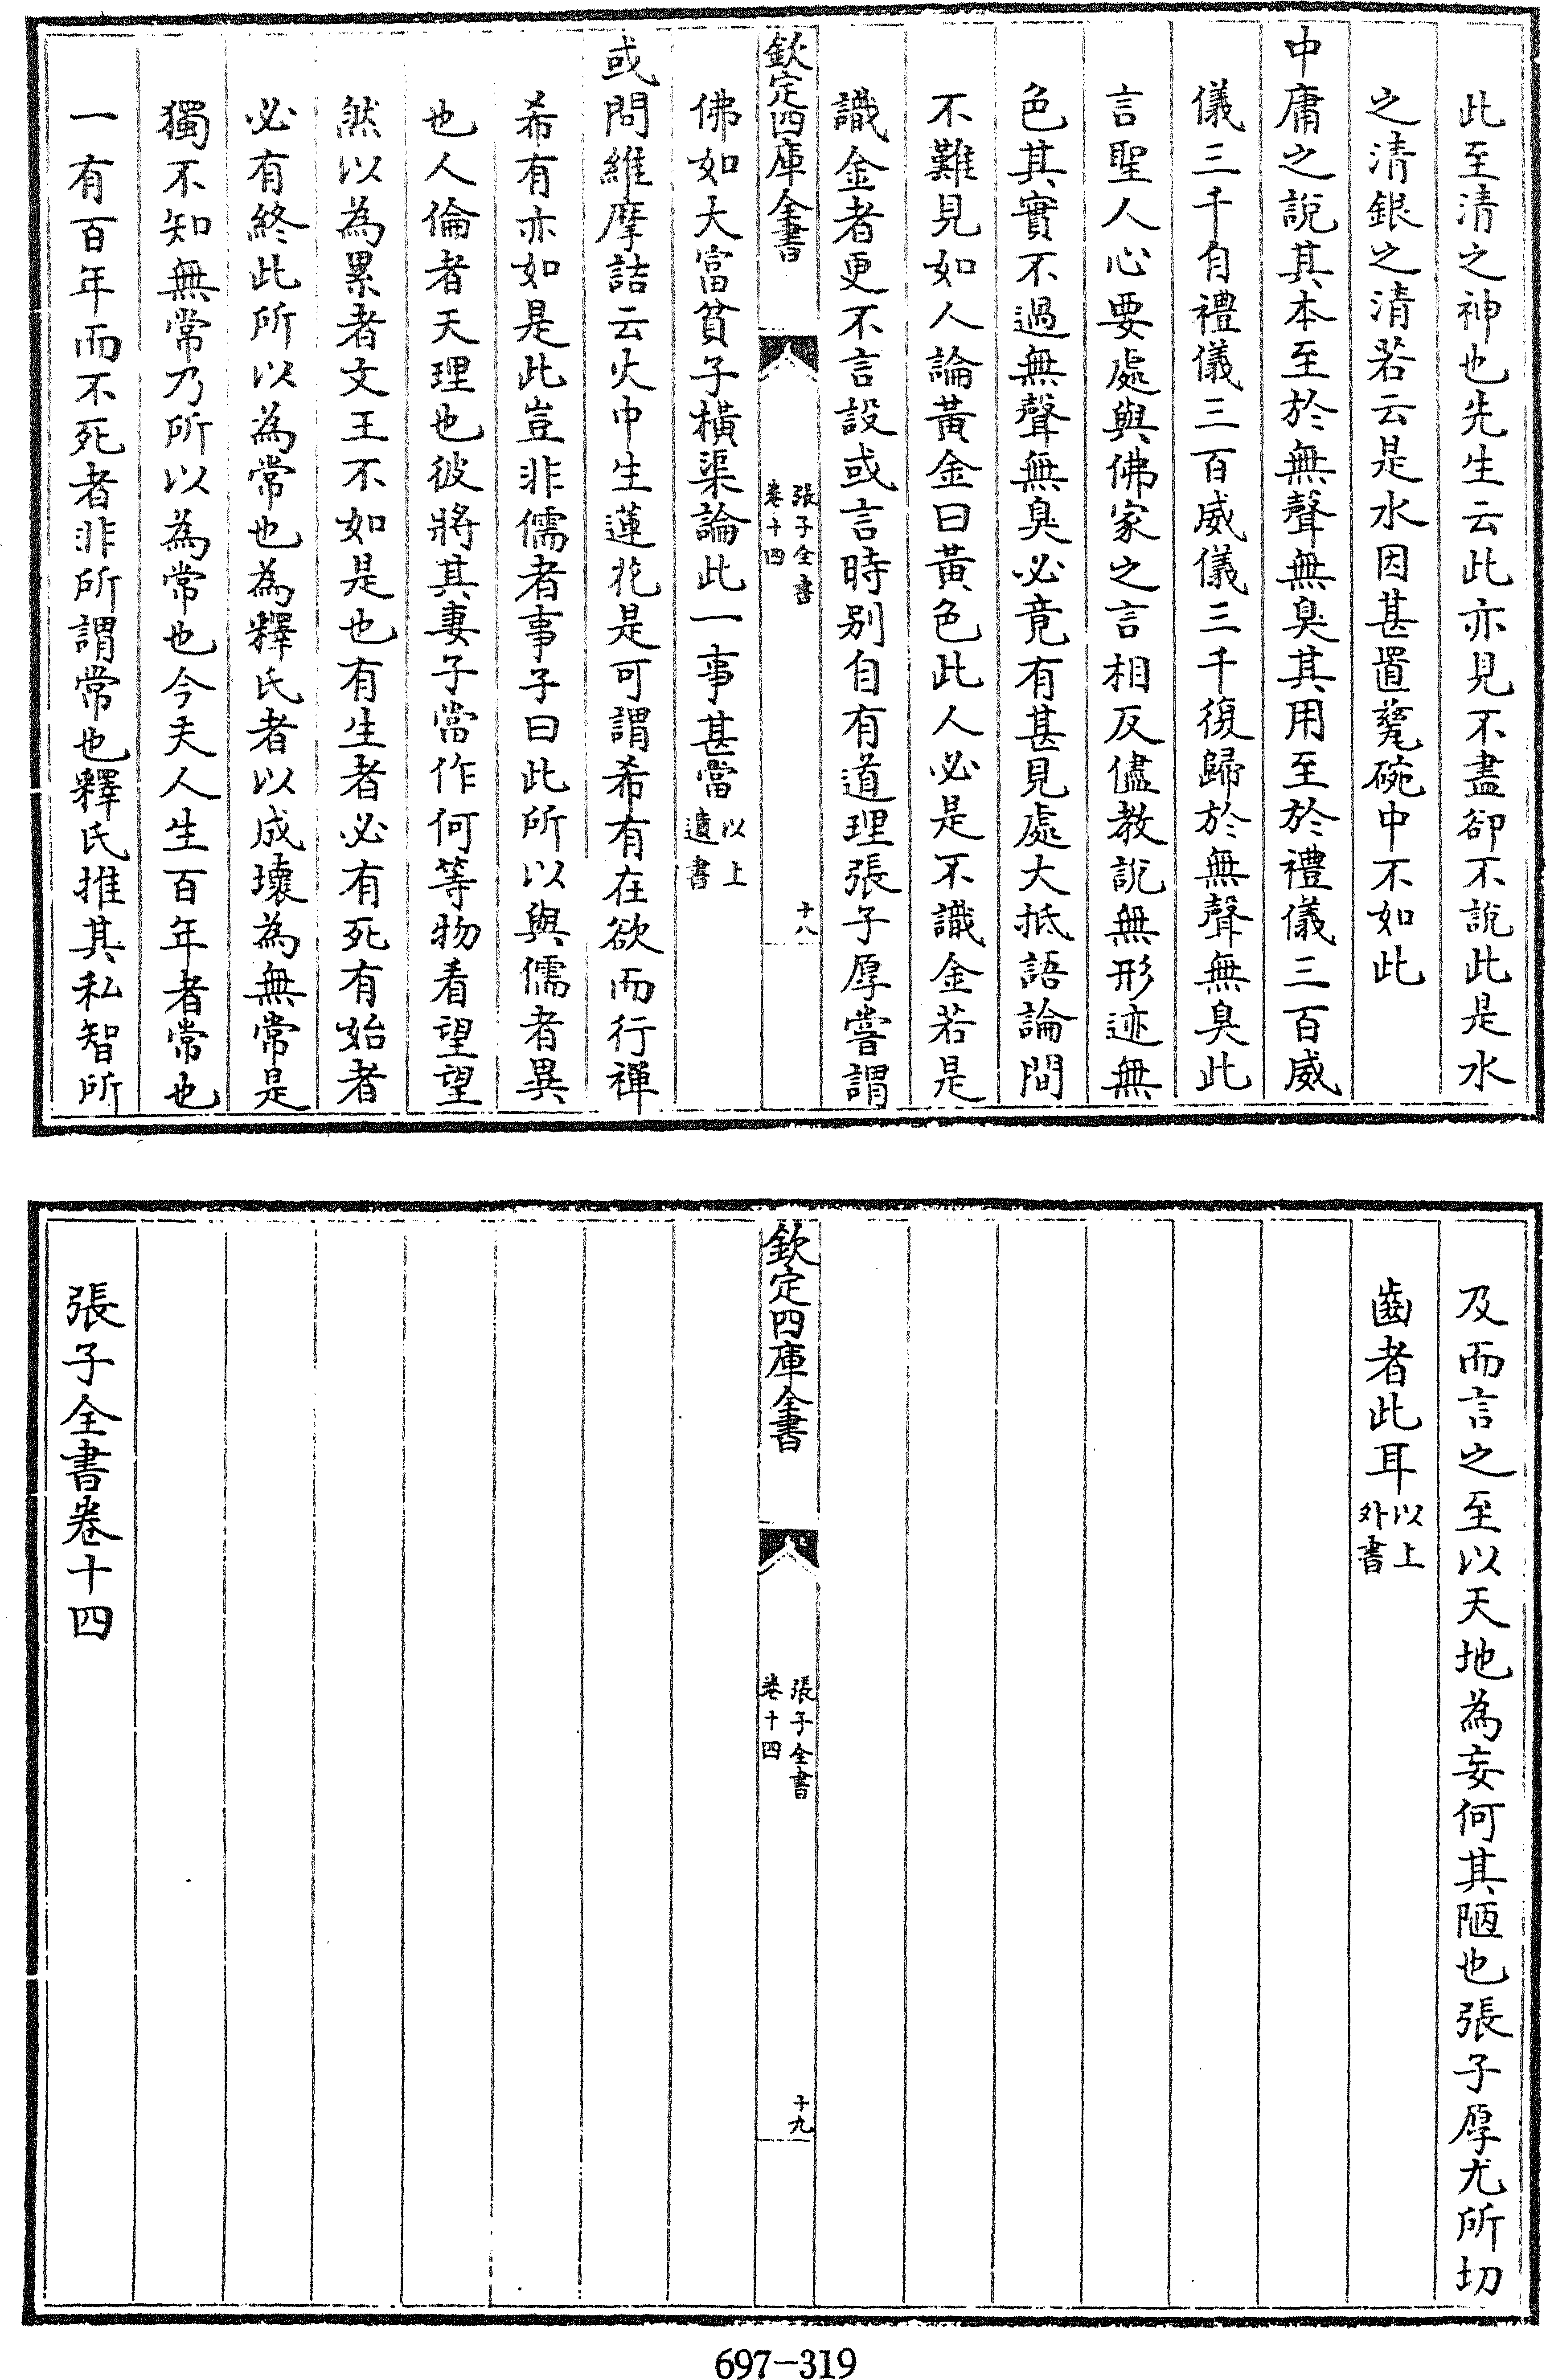 此至清之神也先生云此亦見不盡卻不說此是水
之清銀之清若云是水因甚置甆碗中不如此
中庸之說其本至於無聲無臭其用至於禮儀三百威
儀三千自禮儀三百威儀三千復歸於無聲無臭此
言聖人心要處與佛家之言相反儘教說無形迹無
色其實不過無聲無臭必竟有甚見處大抵語論間
不難見如人論黃金曰黃色此人必是不識金若是
識金者更不言設或言時別自有道理張子厚嘗謂
欽定四庫全書
張子全書
卷十四
十八
佛如大富貧子橫渠論此一事甚當以上
遺書
或問維摩詰云火中生蓮花是可謂希有在欲而行禪
希有亦如是此豈非儒者事子曰此所以與儒者異
也人倫者天理也彼將其妻子當作何等物看望望
然以為累者文王不如是也有生者必有死有始者
必有終此所以為常也為釋氏者以成壞為無常是
獨不知無常乃所以為常也今夫人生百年者常也
一有百年而不死者非所謂常也釋氏推其私智所
及而言之至以天地為妄何其陋也張子厚尤所切
齒者此耳以上
外書
欽定四庫全書
張子全書
卷十四
十九
張子全書卷十四
697-319